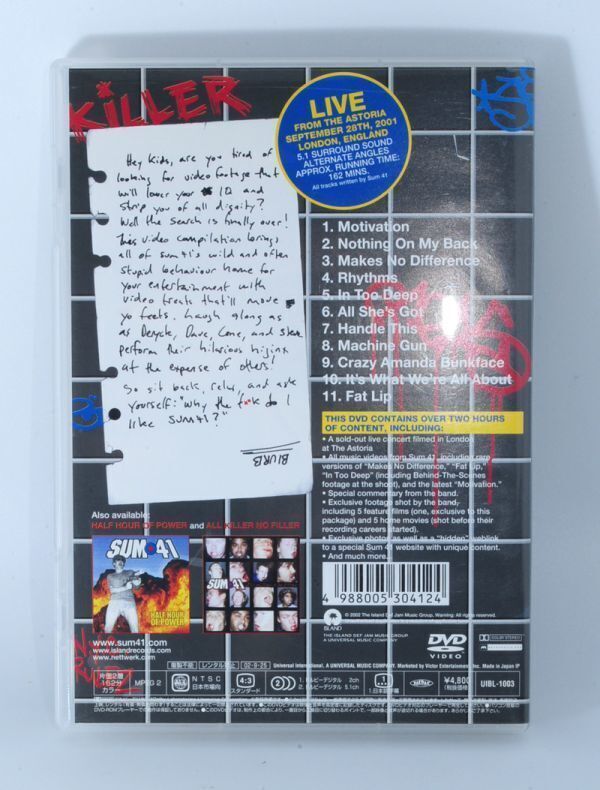 KiLLER
LIVE
FROM THE ASTORIA
SEPTEMBER 28TH, 2001
LONDON, ENGLAND
5.1 SURROUND SOUND
ALTERNATE ANGLES
APPROX. RUNNING TIME:
162 MINS.
All tracks written by Sum 41
Hey Kids, are you tired of
looking for video footage that
will lower your IQ and
strip you of all dignity?
Well the search is finally over!
This video compilation brings
all of sum41's wild and often
stupid behaviour home for
your entertainment with
video treats that'll move
yo feets. Laugh along as
as Deryck, Dave, Cone, and Steve
perform their hilarious hijinx
at the expense of others!
So sit back, relax, and ask
yourself: "why the f*ck do I
like SUM41?"
BLURB
1. Motivation
2. Nothing On My Back
3. Makes No Difference
4. Rhythms
5. In Too Deep
6. All She's Got
7. Handle This
8. Machine Gun
9. Crazy Amanda Bunkface
10. It's What We're All About
11. Fat Lip
THIS DVD CONTAINS OVER TWO HOURS
OF CONTENT, INCLUDING:
• A sold-out live concert filmed in London
at The Astoria
• All music videos from Sum 41, including rare
versions of "Makes No Difference," "Fat Lip,"
"In Too Deep" (including Behind-The-Scenes
footage at the shoot), and the latest "Motivation."
• Special commentary from the band.
• Exclusive footage shot by the band,
including 5 feature films (one, exclusive to this
package) and 5 home movies (shot before their
recording careers started).
• Exclusive photos as well as a "hidden" weblink
to a special Sum 41 website with unique content.
• And much more.
Also available:
HALF HOUR OF POWER and ALL KILLER NO FILLER
SUM 41
HALF HOUR
OF POWER
SUM 41
4 988005 304124
www.sum41.com
www.islandrecords.com
www.nettwerk.com
ISLAND
© 2002 The Island Def Jam Music Group. Warning: All rights reserved.
THE ISLAND DEF JAM MUSIC GROUP
A UNIVERSAL MUSIC COMPANY
DVD
VIDEO
DOLBY DIGITAL STEREO
複製不能 レンタル禁止 02-9-25 Universal International, A UNIVERSAL MUSIC COMPANY. Marketed by Victor Entertainment Inc. Made in Japan
片面2層
162分
カラー
MPEG 2
ALL
NTSC
日本市場向
4:3
スタンダード
2
1.ドルビーデジタル 2ch
2.ドルビーデジタル 5.1ch
1.日本語字幕
¥4,800
(税抜価格)
UIBL-1003